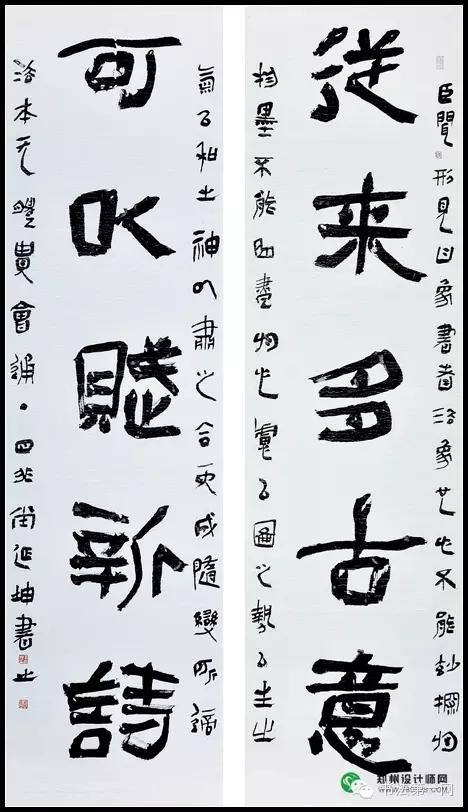 臣聞形見曰象書者法象也心不能妙探於
從来多古意
物墨不能曲盡於心慮以圖之勢以生之
氣以和之神以肅之合而成隨變所適
可以賦新詩
法本无體貴會通·延坤書之
郑州设计师网